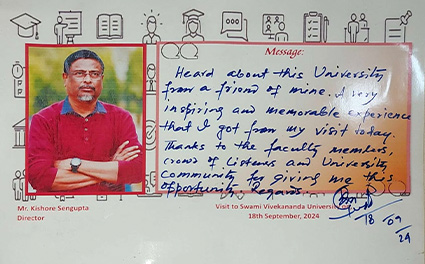 Message:
Heard about this University
from a friend of mine. A very
inspiring and memorable experience
that I got from my visit today.
Thanks to the faculty members,
crowd of Listeners and University
Community for giving me this
opportunity. Regards.
18/09/24
Mr. Kishore Sengupta
Director
Visit to Swami Vivekananda University
18th September, 2024